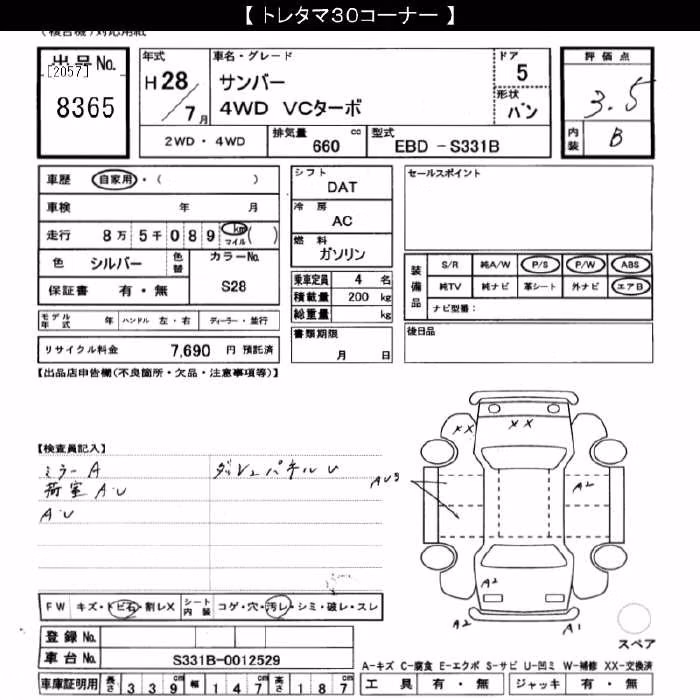 【 トレタマ30コーナー 】
(複合機)対応用紙
出品No.
[2057]
8365
年式
H 28 / 7 月
車名・グレード
サンバー
4WD VCターボ
ドア
5
形状
バン
評価点
3.5
内装
B
2WD・4WD
排気量 660 cc
型式 EBD-S331B
車歴 自家用・( )
車検 年 月
走行 8万 5千 0 8 9 km マイル ( )
色 シルバー 色替
カラーNo. S28
保証書 有・無
シフト
DAT
冷房
AC
燃料
ガソリン
乗車定員 4 名
積載量 200 kg
総重量 kg
セールスポイント
装備品
S/R 純A/W P/S P/W ABS
純TV 純ナビ 革シート 外ナビ エアB
ナビ型番:
モデル年式 年 ハンドル 左・右 ディーラー・並行
リサイクル料金 7,690 円 預託済
書類期限
月 日
後日品
【出品店申告欄(不良箇所・欠品・注意事項等)】
【検査員記入】
ミラーA
荷室 A・U
A・U
ダッシュパネルU
XX XX
AU3
A2
A2
A2 A1
スペア
FW キズ・トビ石・割レX シート内装 コゲ・穴・汚レ・シミ・破レ・スレ
登録No.
車台No. S331B-0012529
車庫証明用 長さ 339 幅 147 高さ 187
A-キズ C-腐食 E-エクボ S-サビ U-凹ミ W-補修 XX-交換済
工具 有・無 ジャッキ 有・無